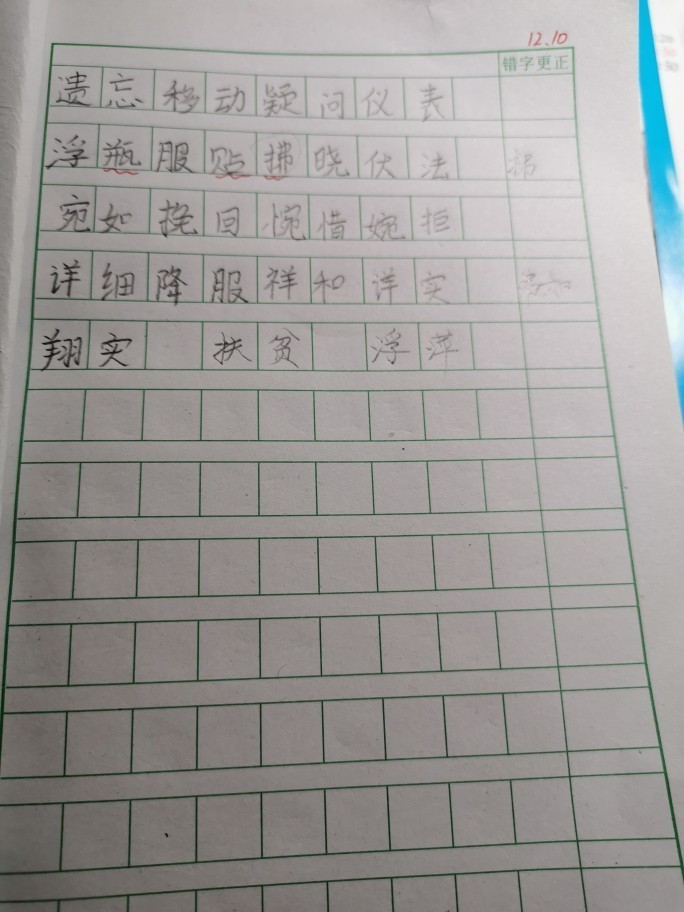 12.10
错字更正
遗忘移动疑问仪表
浮瓶服贴拂晓伏法
宛如挽回惋惜婉拒
详细降服祥和详实
翔实 扶贫 浮萍